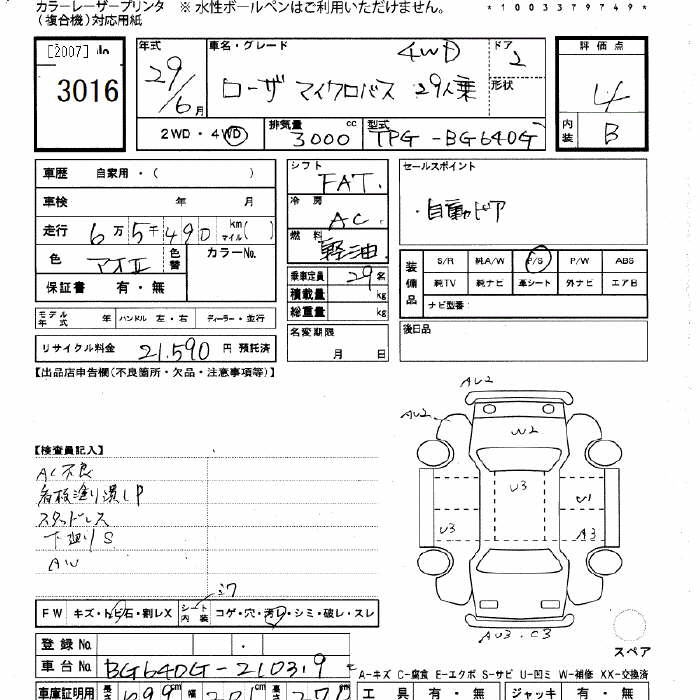 カラーレーザープリンタ ※ 水性ボールペンはご利用いただけません。 *1003379749*
(複合機)対応用紙
[2007]
3016
年式 29/6月
2WD・4WD
車名・グレード 4WD
ローザ マイクロバス 29人乗
ドア 2
形状
排気量 3000 cc
型式 TPG-BG640G
評価点 4
内装 B
車歴 自家用・( )
車検 年 月
走行 6万5千490 km マイル( )
色 アオII 色替 カラーNo.
保証書 有・無
モデル年式 年 ハンドル 左・右 ディーラー・並行
リサイクル料金 21,590 円 預託済
シフト FAT.
冷房 AC.
燃料 軽油
乗車定員 29名
積載量 kg
総重量 kg
名変期限 月 日
セールスポイント
・自動ドア
装備品 S/R 純A/W P/S P/W ABS
純TV 純ナビ 革シート 外ナビ エアB
ナビ型番:
後日品
【出品店申告欄(不良箇所・欠品・注意事項等)】
【検査員記入】
AC不良
看板塗り潰しP
スタッドレス
下廻りS
AW
AU2
AU2
W2
U3
U1
U3
A3
AU3.C3
スペア
FW キズ・トビ石・割レX シート内装 コゲ・穴・汚レ・シミ・破レ・スレ
登録No.
車台No. BG640G-210319
A-キズ C-腐食 E-エクボ S-サビ U-凹ミ W-補修 XX-交換済
車庫証明用 長さ 699cm 幅 201cm 高さ
工具 有・無 ジャッキ 有・無